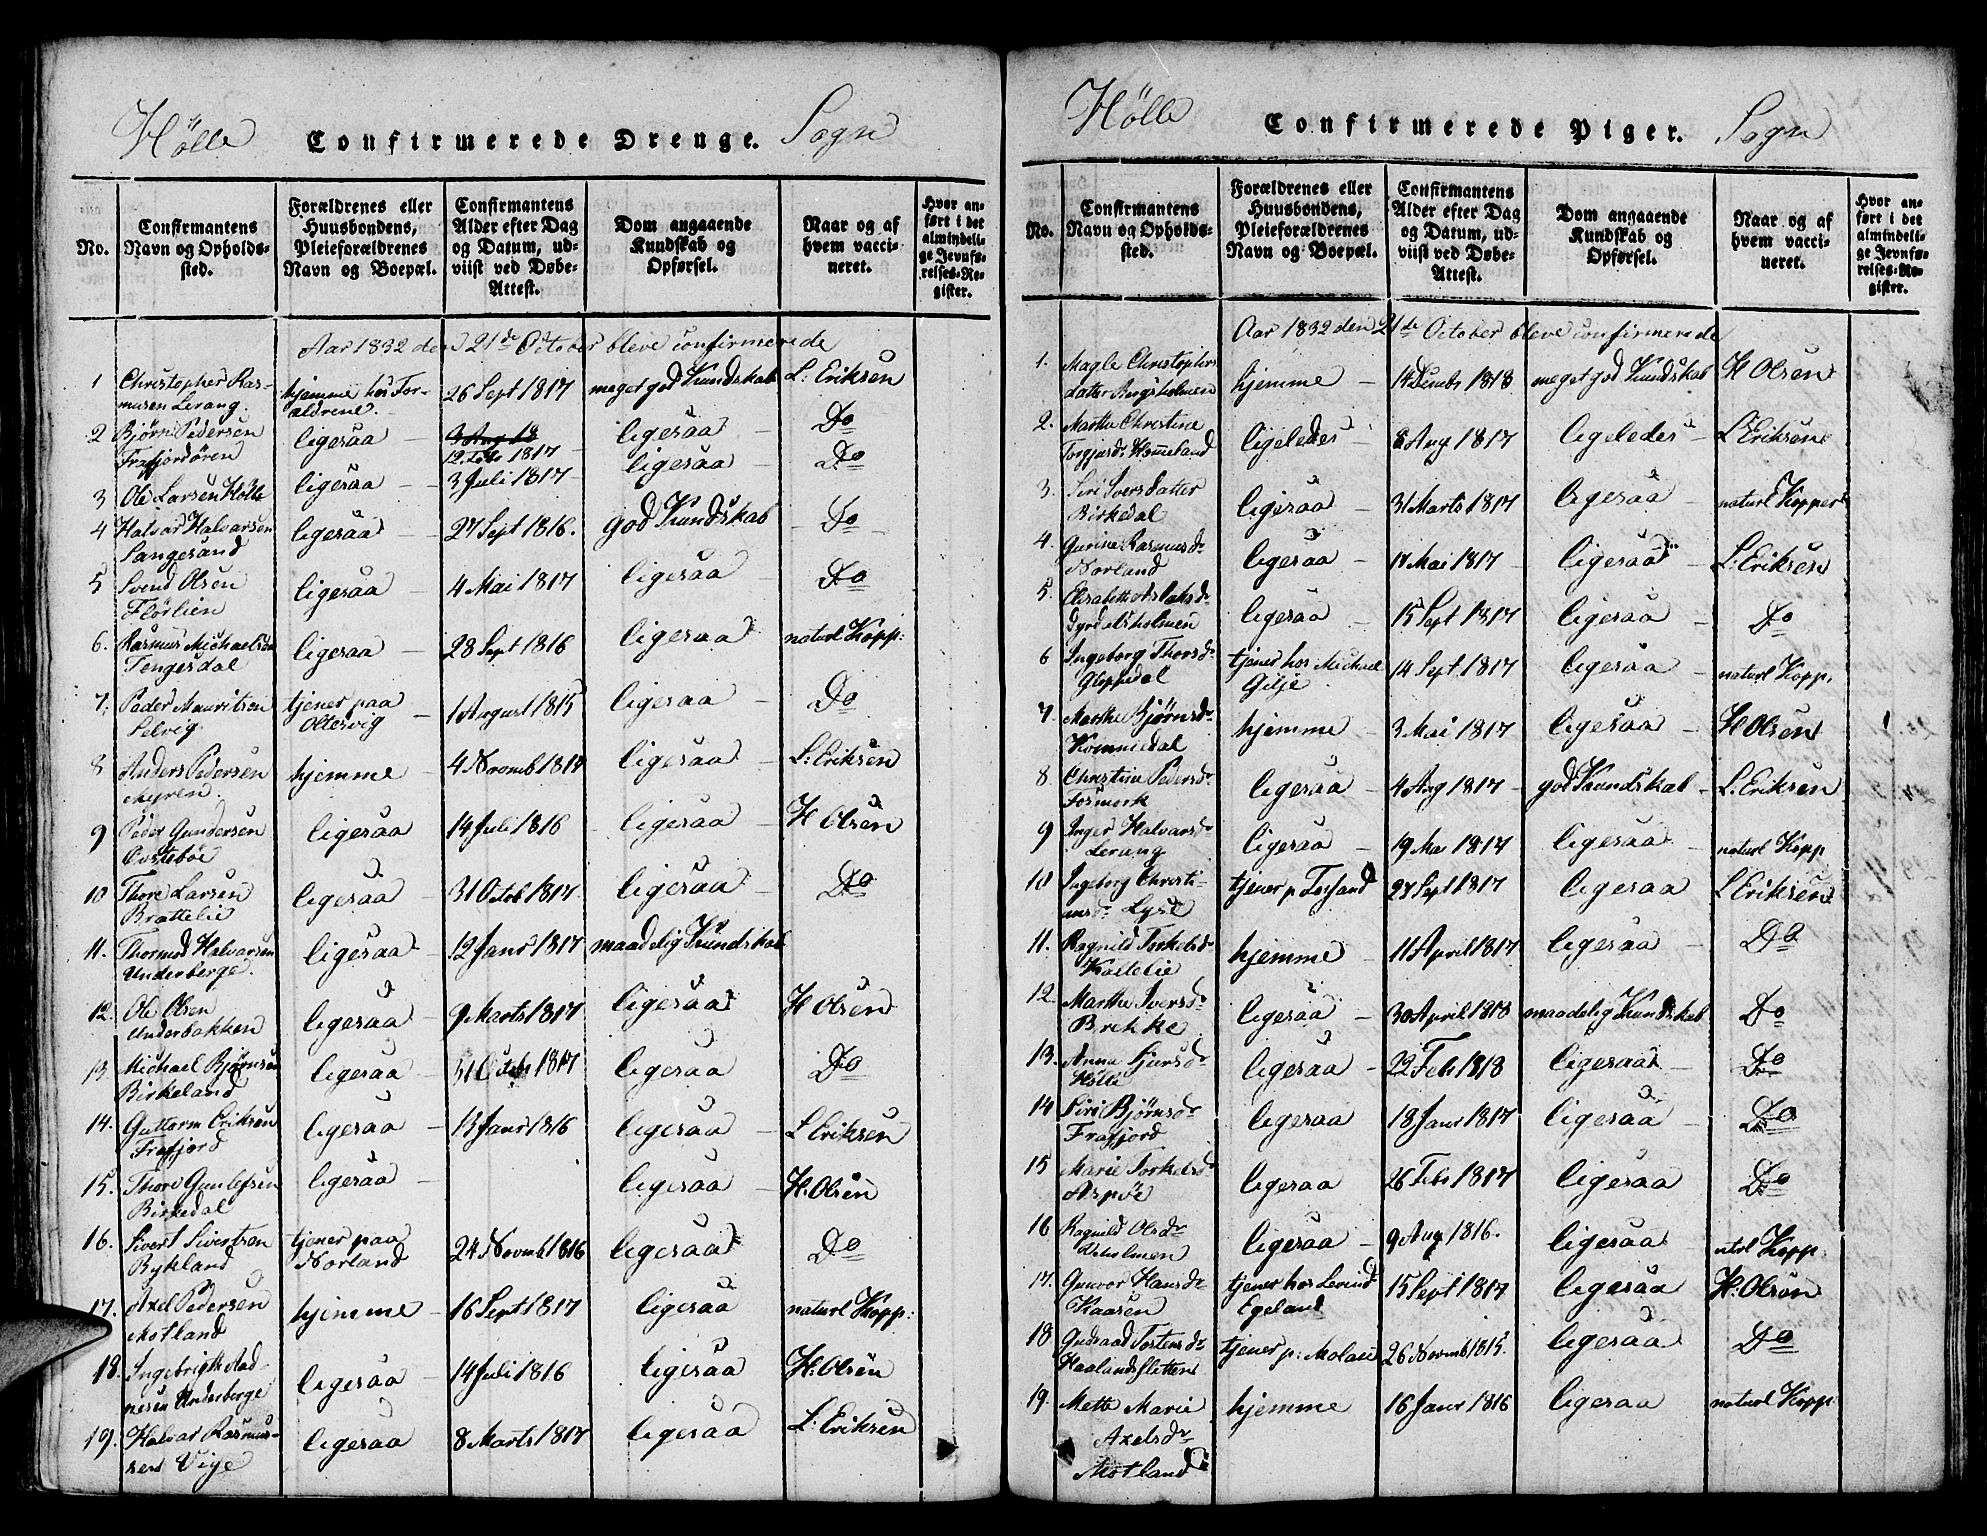 Hölle Confirmerede Drenge. Sogn
No.
Confirmantens Navn og Opholds-sted.
Forældrenes eller Huusbondens, Pleieforældrenes Navn og Boepæl.
Confirmantens Alder efter Dag og Datum, ud-viist ved Døbe-Attest.
Dom angaaende Kundskab og Opførsel.
Naar og af hvem vacci-neret.
Hvor an-ført i det almindeli-ge Jevnfø-relses-Re-gister.
Aar 1832 den 21de October bleve confirmerede
1 Christopher Ras-musen Lerang. hjemme hos For-ældrene. 26 Sept 1817 meget god Kundskab L: Eriksen
2 Bjørn Pedersen Frafjordören ligesaa 12 Feb: 1817 ligesaa Do
3 Ole Larsen Hölle ligesaa 3 Juli 1817 ligesaa Do
4 Halvar Halvarsen Sangesand ligesaa 27 Sept 1816. god Kundskab Do
5 Svend Olsen Flörlien ligesaa 4 Mai 1817 ligesaa Do
6. Rasmus Michaelsen Tengesdal ligesaa 28 Sept 1816 ligesaa naturl Kopp:
7. Peder Mauritsen Selvig tjener paa Oltesvig 1 August 1815 ligesaa Do
8 Anders Pedersen Myren. hjemme 4 Novemb 1817 ligesaa L: Eriksen
9 Peder Gundersen Ovstebøe ligesaa 14 Juli 1816 ligesaa H Olsen
10 Thore Larsen Brattelie ligesaa 31 Octob 1817 ligesaa Do
11. Thormod Halvarsen Underberge. ligesaa 12 Janr 1817 maadelig Kundskab
12. Ole Olsen Underbakken ligesaa 9 Marts 1817 ligesaa H Olsen
13 Michael Bjørnsen Birkeland ligesaa 31 Octobr 1817 ligesaa Do
14. Guttorm Eriksen Frafjord ligesaa 13 Janr 1816 ligesaa L Eriksen
15. Thore Gunlefsen Birkedal ligesaa ligesaa H: Olsen
16. Sivert Sivertsen Rykland tjener paa Norland 24 Novemb 1816 ligesaa Do
17. Axel Pedersen Motland hjemme 16 Sept 1817 ligesaa naturl Kopp:
18. Ingebrigth Aad-nesen Underberge ligesaa 14 Juli 1816 ligesaa H: Olsen
19. Halvar Rasmus-sen Vige ligesaa 8 Marts 1817 ligesaa L: Eriksen
Hölle Confirmerede Piger. Sogn
No.
Confirmantens Navn og Opholds-sted.
Forældrenes eller Huusbondens, Pleieforældrenes Navn og Boepæl.
Confirmantens Alder efter Dag og Datum, ud-viist ved Døbe-Attest.
Dom angaaende Kundskab og Opførsel.
Naar og af hvem vacci-neret.
Hvor an-ført i det almindeli-ge Jevnfø-relses-Re-gister.
Aar 1832 den 21de October bleve confirmerede
1. Magle Christophers datter Bergsholmen hjemme 1818 meget god Kundskab H Olsen
2. Martha Christine Torgjersdr Hommeland ligeledes 8 Aug 1817 ligeledes L Eriksen
3. Siri Iversdatter Birkedal ligesaa 31 Marts 1817 ligesaa naturl Kopper
4. Gurine Rasmusdr Norland ligesaa 17 Mai 1817 ligesaa L: Eriksen
5. Elisabeth Aslaksdr ligesaa 15 Sept 1817 ligesaa Do
6 Ingeborg Thorsdr Gloppedal tjener hos Michael Gilje 14 Sept 1817 ligesaa naturl Kopp.
7. Marthe Bjørnsdr Kommedal hjemme 3 Mai 1817 ligesaa H Olsen
8 Christine Pedersdr Fosmork ligesaa 4 Aug 1817 god Kundskab L: Eriksen
9 Inger Halvarsdr Lerang ligesaa 19 Mai 1817 ligesaa naturl Kopp
10 Ingeborg Christi-ansdr Lyse tjener p Fosand 27 Sept 1817 ligesaa L Eriksen
11. Ragnild Torkelsdr Kallelie hjemme 11 April 1817 ligesaa Do
12 Marthe Iversdr Brekke ligesaa 30 April 1818 maadelig Kundskab Do
13. Anna Sjursdr Hölle ligesaa 22 Feb 1818 ligesaa Do
14 Siri Bjørnsdr Frafjord ligesaa 18 Janr 1817 ligesaa Do
15 Marie Torkelsdr Aspøe ligesaa 26 Feb 1817 ligesaa Do
16 Ragnild Olsdr Reholmen ligesaa 9 Aug 1816. ligesaa ntrl Kopp:
17. Gunvor Hansdr Kaasen tjener hos Levind Egeland 15 Sept 1817 ligesaa H: Olsen
18 Gudraad Tostensdr Haalandsletten tjener p: Molaü 26 Novemb 1815. ligesaa Do
19. Mette Marie Axelsdr Motland hjemme 16 Janr 1816 ligesaa naturl Kopp